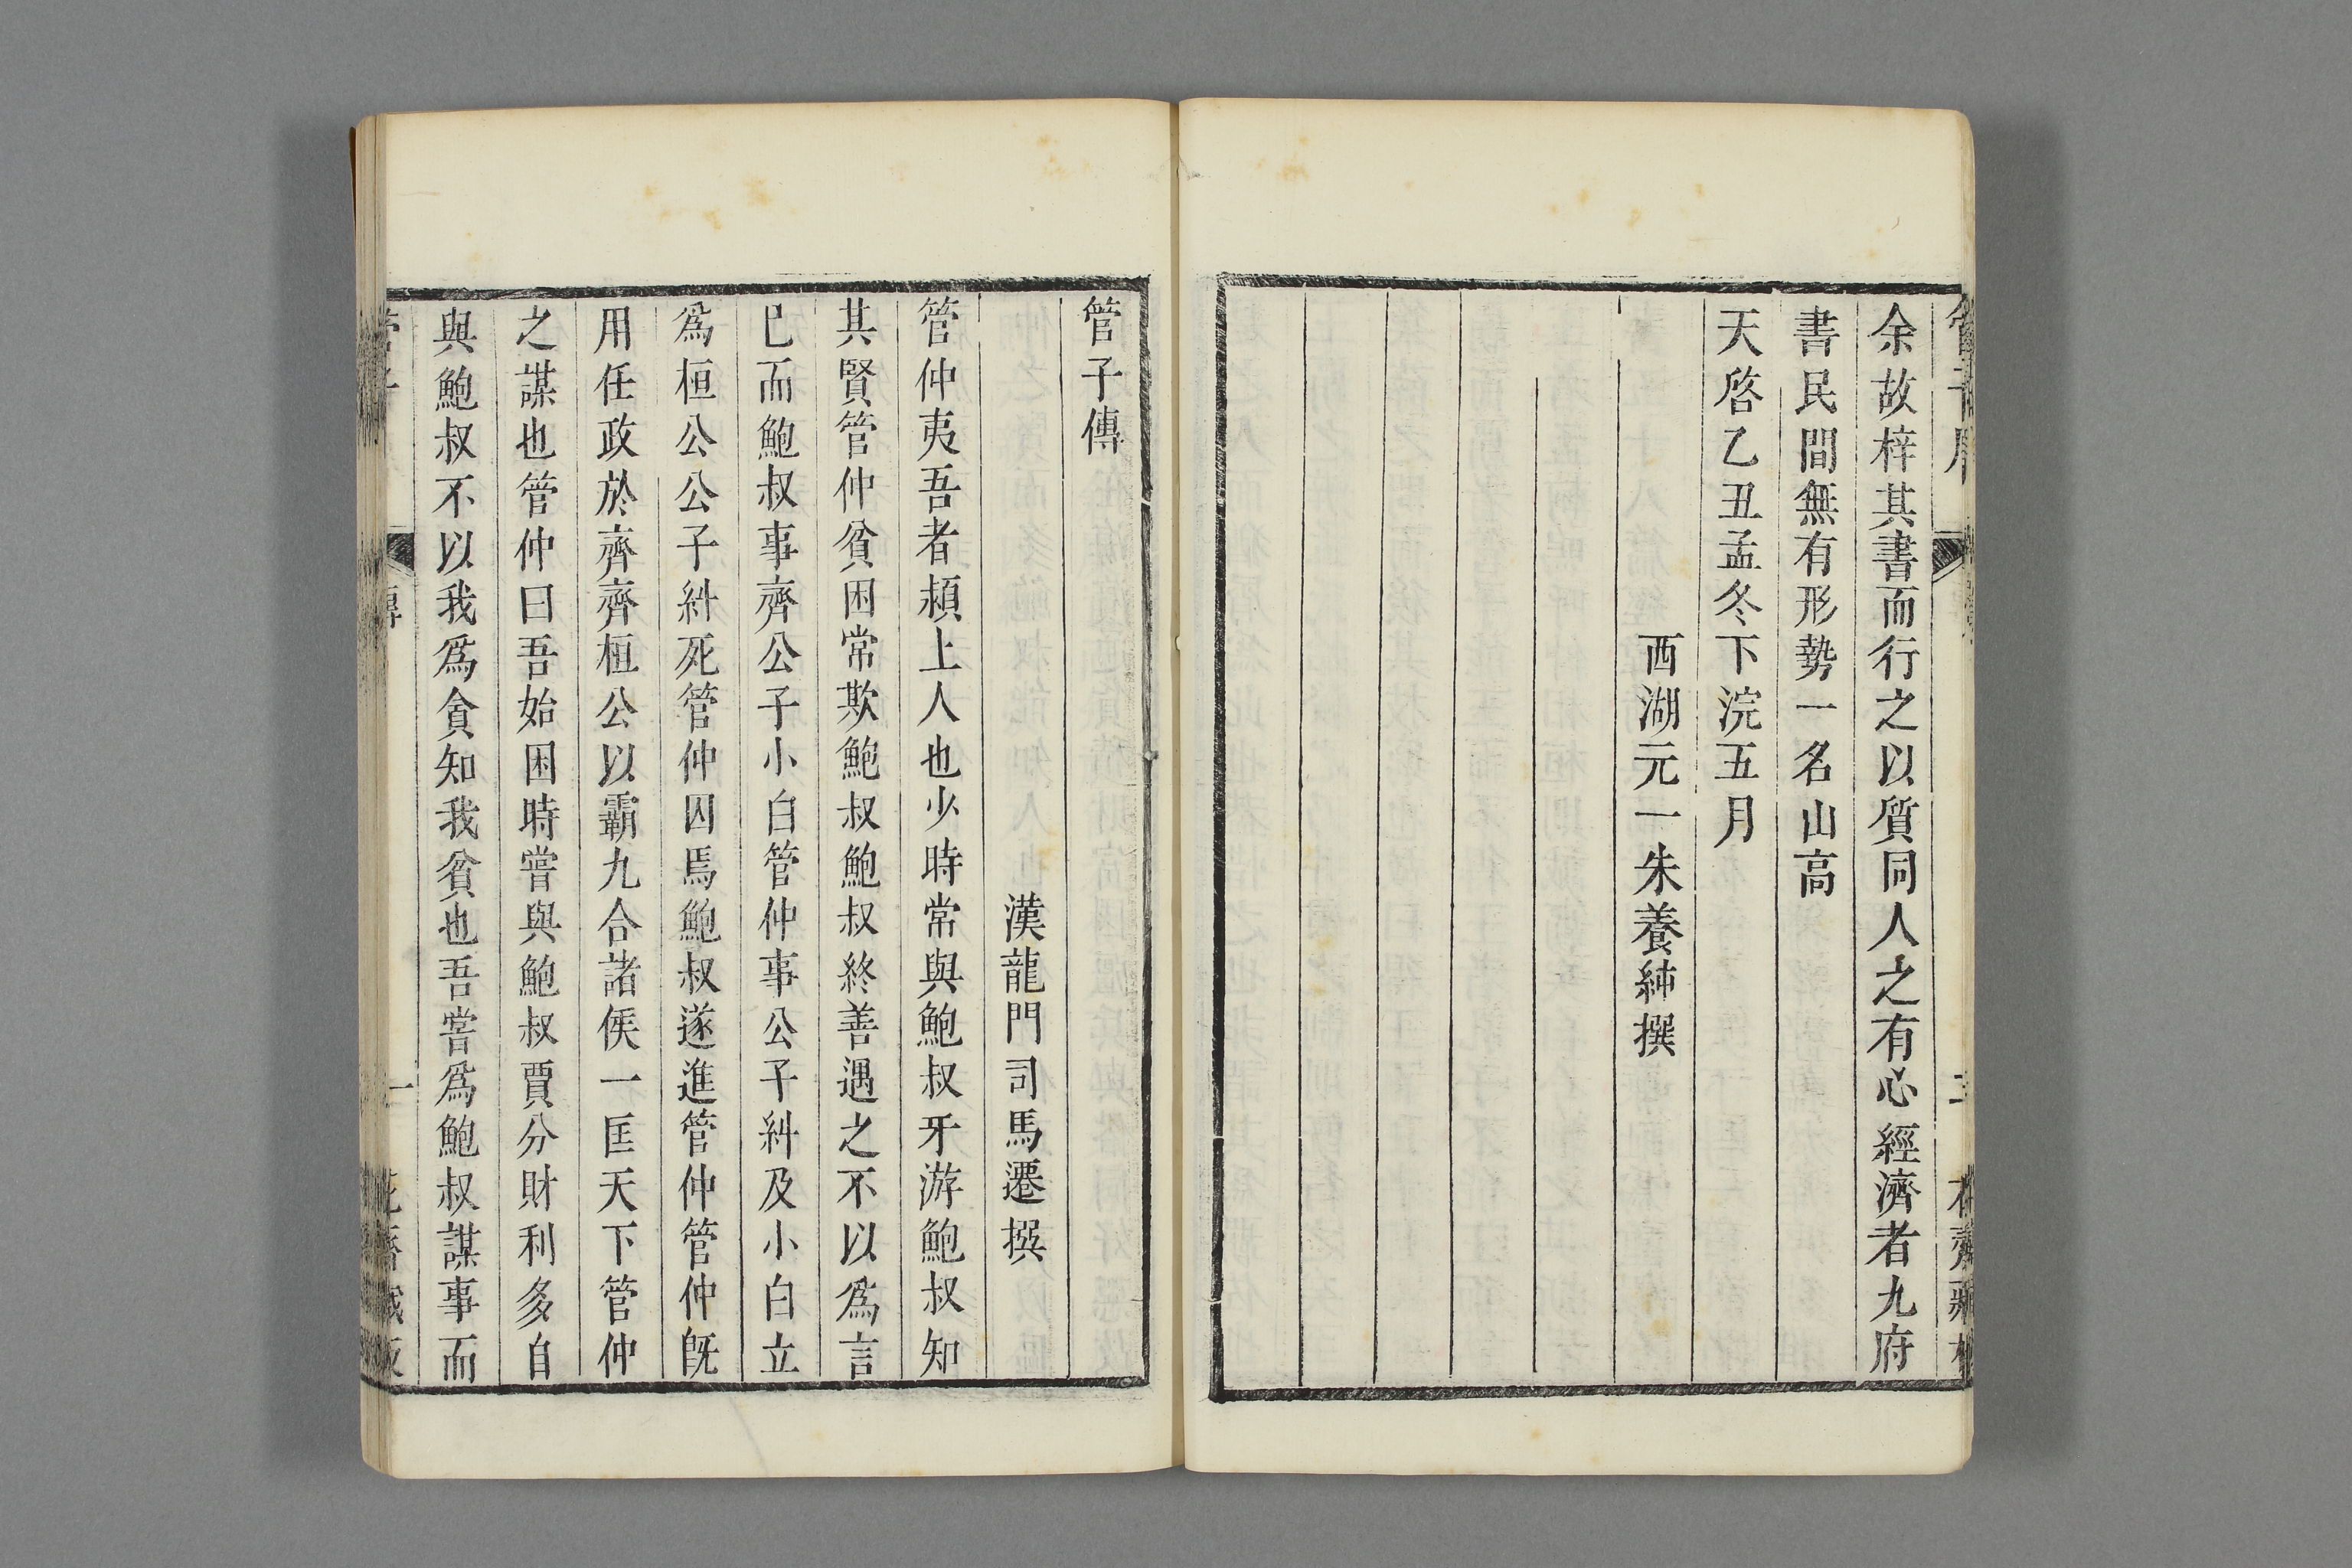 余故梓其書而行之以質同人之有必經濟者九府
書民間無有形勢一名山高
天啓乙丑孟冬下浣五月
西湖元一朱養純撰
管子傳
漢龍門司馬遷撰
管仲夷吾者潁上人也少時常與鮑叔牙游鮑叔知
其賢管仲貧困常欺鮑叔鮑叔終善遇之不以爲言
已而鮑叔事齊公子小白管仲事公子糾及小白立
爲桓公公子糾死管仲囚焉鮑叔遂進管仲管仲旣
用任政於齊齊桓公以霸九合諸侯一匡天下管仲
之謀也管仲曰吾始困時嘗與鮑叔賈分財利多自
與鮑叔不以我爲貪知我貧也吾嘗爲鮑叔謀事而